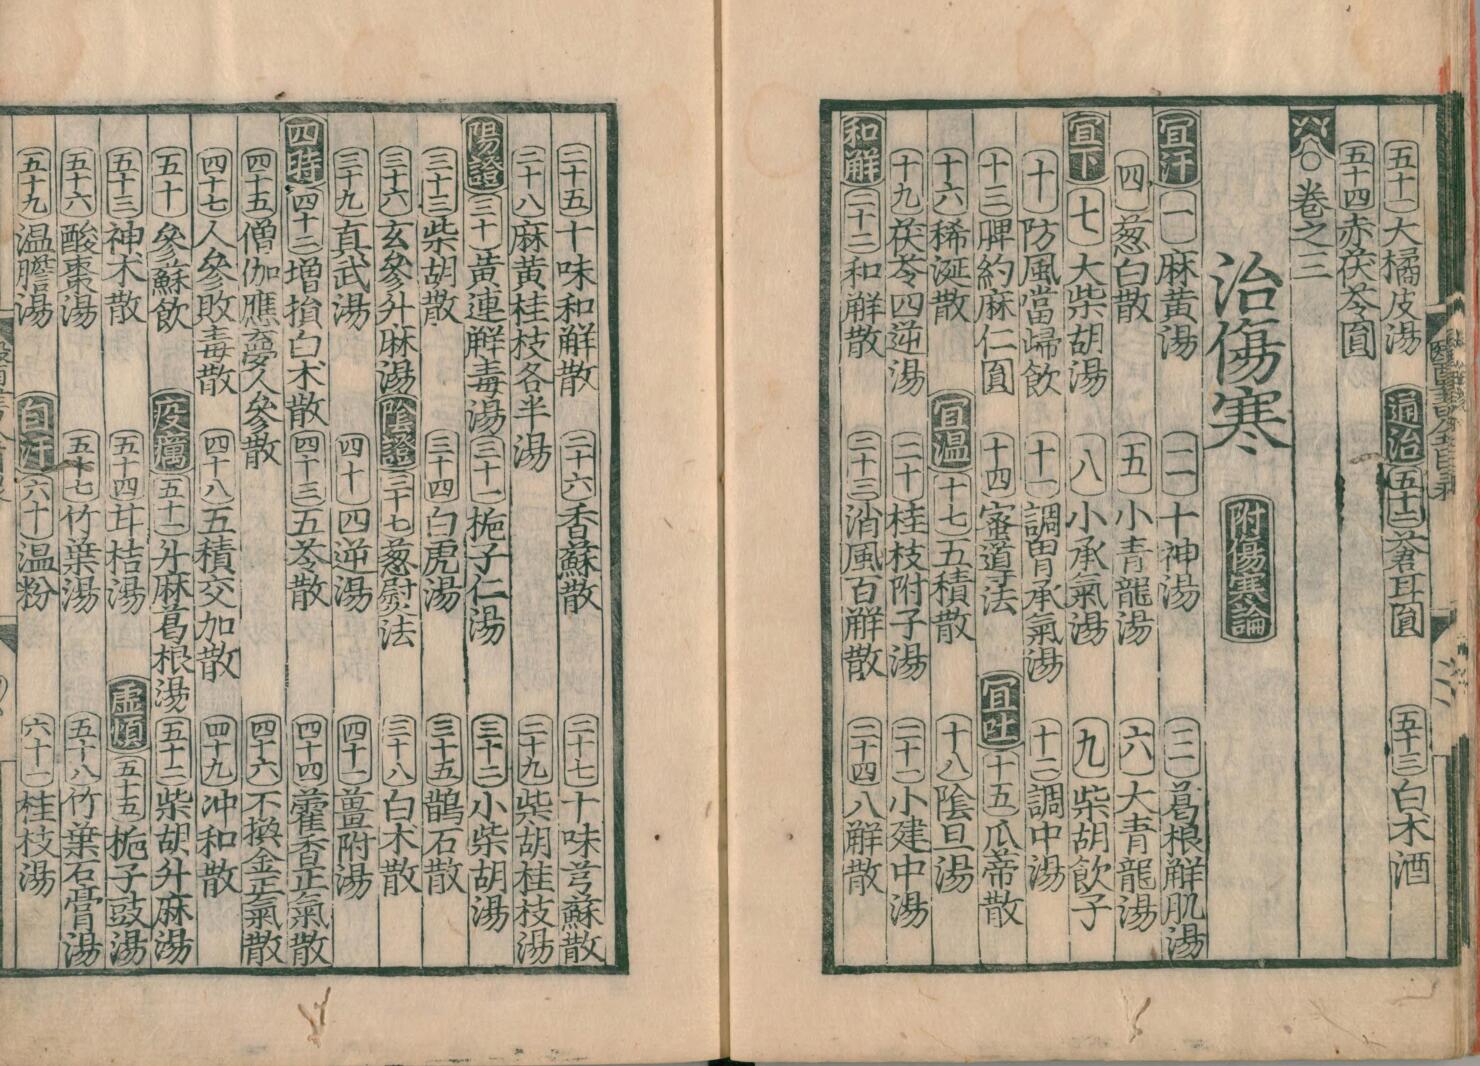 五十一大橘皮湯 通治 五十二蒼耳圓 五十三白术酒
五十四赤茯苓圓
卷之三
治傷寒 附傷寒論
宜汗 一麻黃湯 二十神湯 三葛根解肌湯
四葱白散 五小青龍湯 六大青龍湯
宜下 七大柴胡湯 八小承氣湯 九柴胡飲子
十防風當歸飲 十一調胃承氣湯 十二調中湯
十三脾約麻仁圓 十四蜜道法 宜吐 十五瓜蒂散
十六稀涎散 宜温 十七五積散 十八陰旦湯
十九茯苓四逆湯 二十桂枝附子湯 二十一小建中湯
和解 二十二和解散 二十三消風百解散 二十四八解散
二十五十味和解散 二十六香蘇散 二十七十味芎蘇散
二十八麻黃桂枝各半湯 二十九柴胡桂枝湯
陽證 三十黃連解毒湯 三十一梔子仁湯 三十二小柴胡湯
三十三柴胡散 三十四白虎湯 三十五鵲石散
三十六玄參升麻湯 陰證 三十七葱熨法 三十八白术散
三十九真武湯 四十四逆湯 四十一薑附湯
四時 四十二增損白术散 四十三五苓散 四十四藿香正氣散
四十五僧伽應夢人參散 四十六不換金正氣散
四十七人參敗毒散 四十八五積交加散 四十九冲和散
五十參蘇飲 疫癘 五十一升麻葛根湯 五十二柴胡升麻湯
五十三神术散 五十四甘桔湯 虛煩 五十五梔子豉湯
五十六酸棗湯 五十七竹葉湯 五十八竹葉石膏湯
五十九温膽湯 自汗 六十温粉 六十一桂枝湯